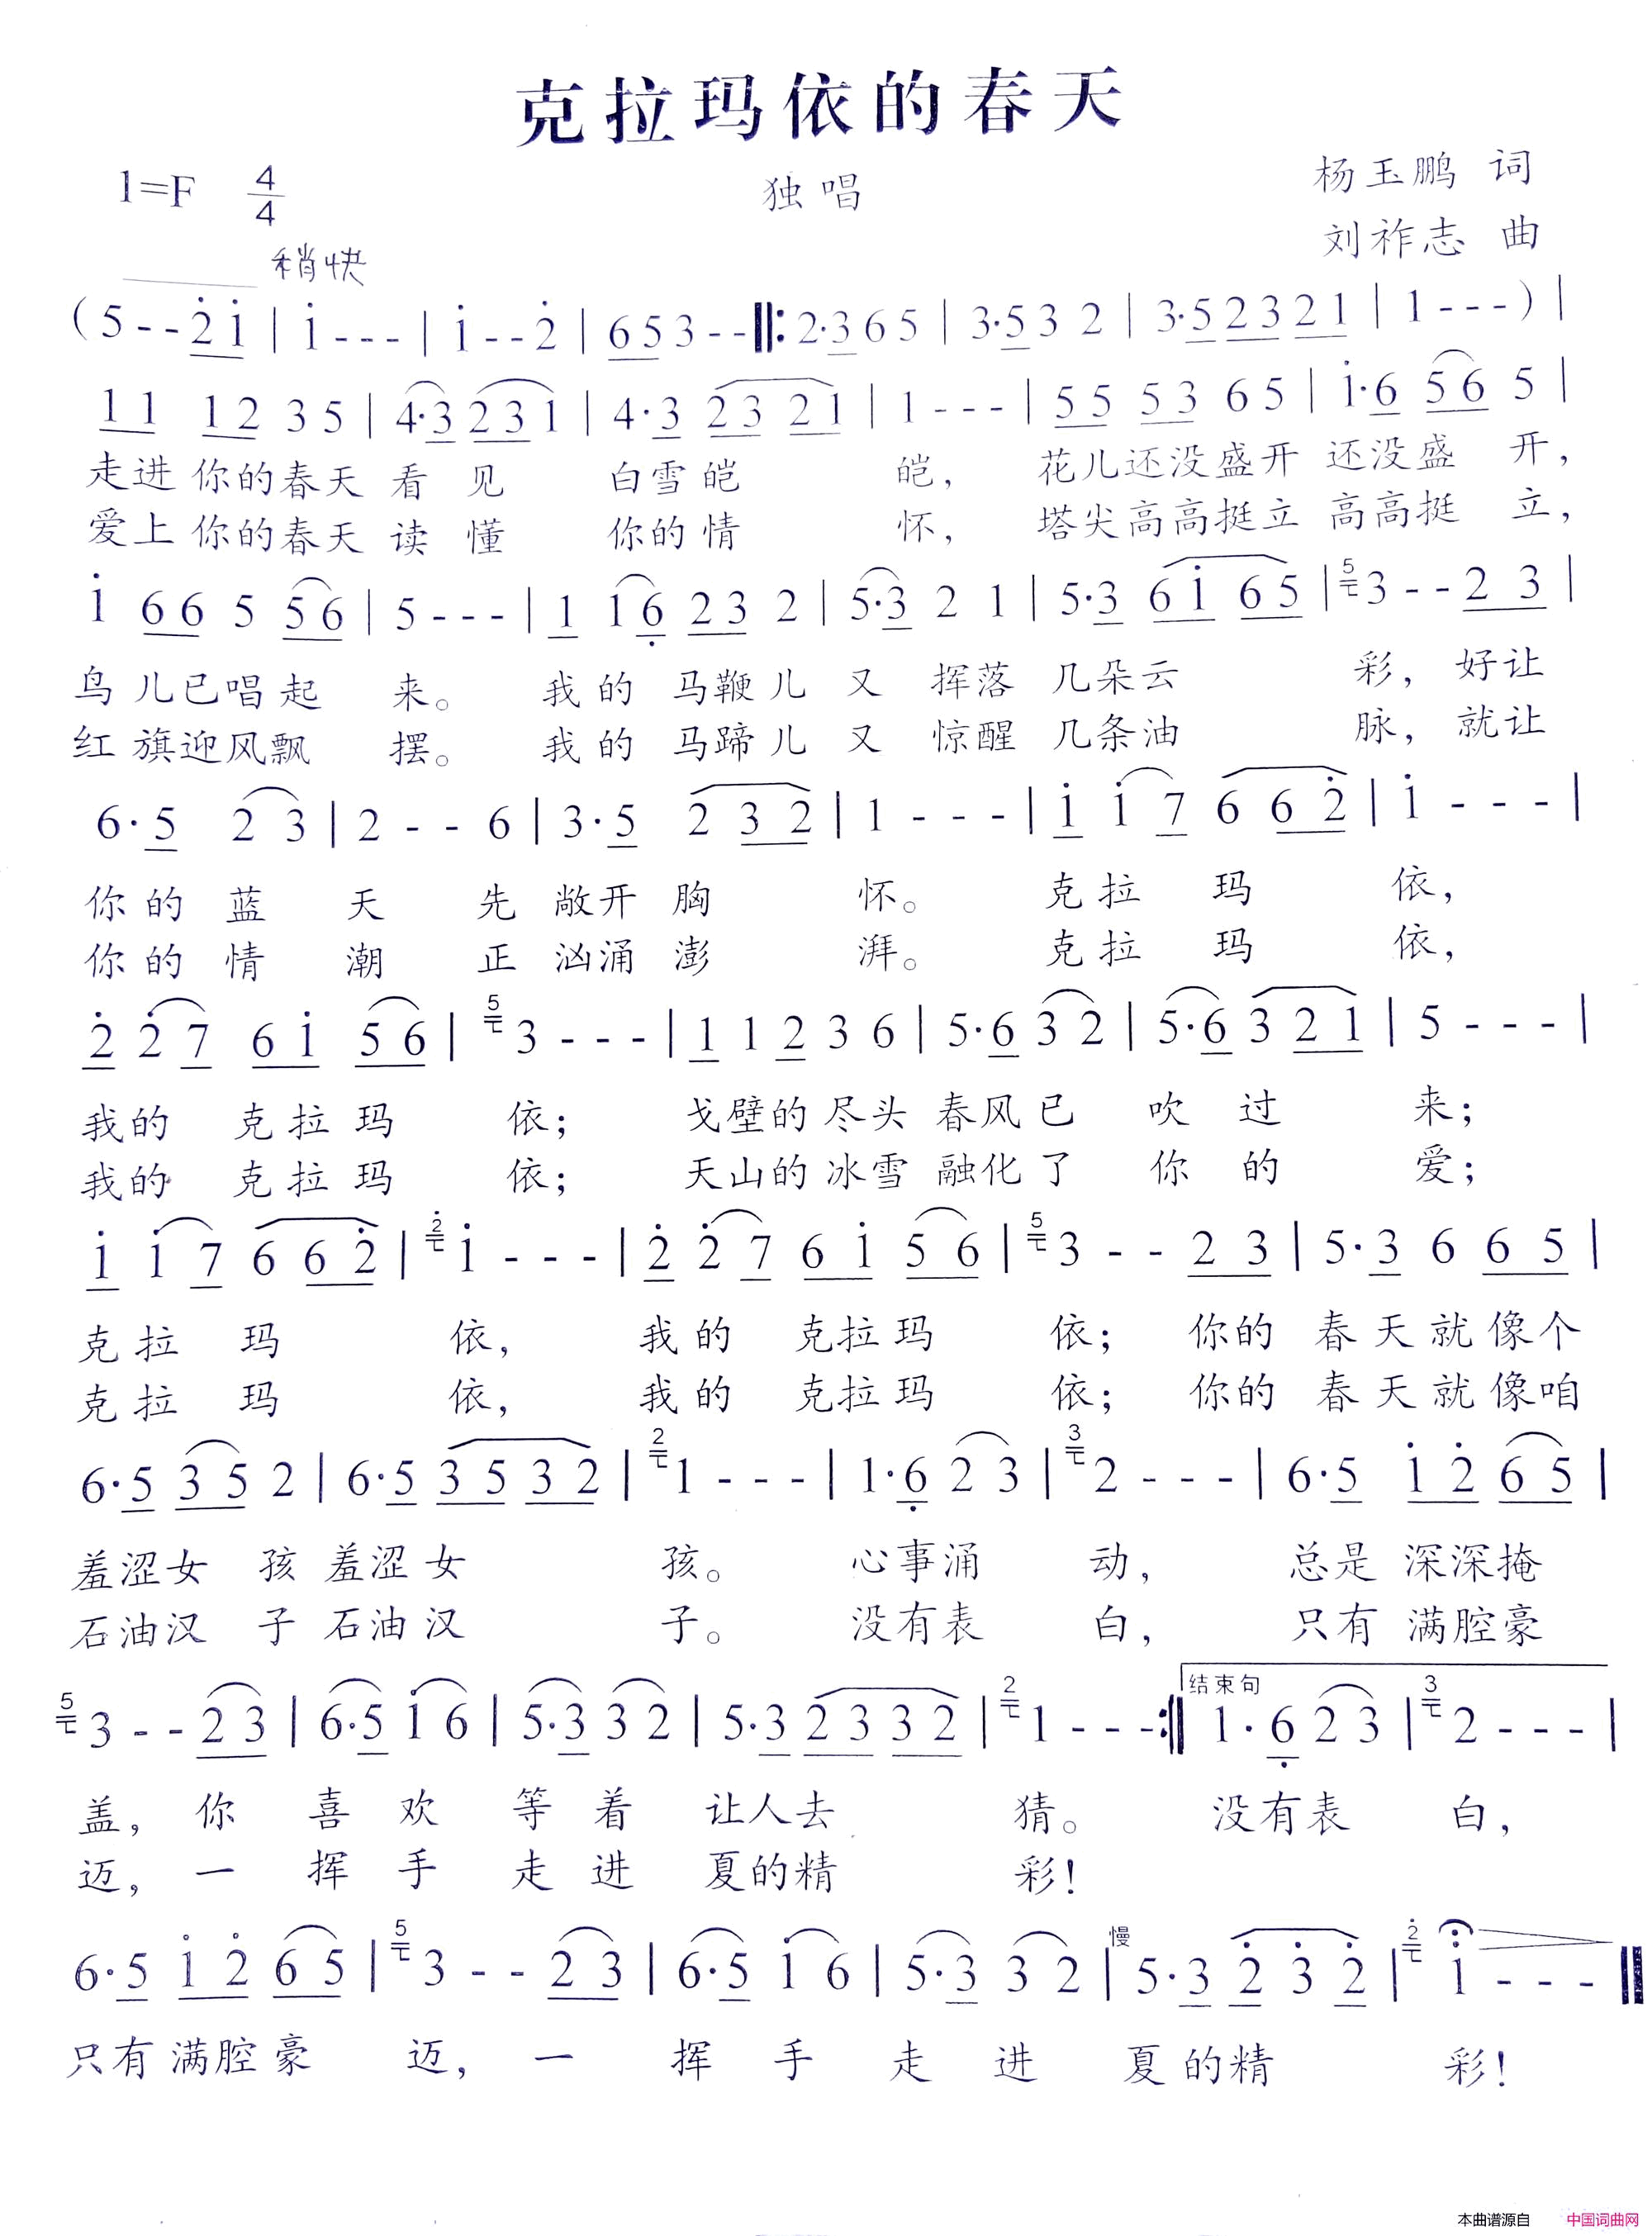 克拉玛依的春天
1=F 4/4
独唱
杨玉鹏 词
刘祚志 曲
稍快
(5--2̇ 1̇ | 1̇--- | 1̇--2̇ | 6 5 3-- ‖: 2·3 6 5 | 3·5 3 2 | 3·5 2 3 2 1 | 1---) |
1 1 1 2 3 5 | 4·3 2 3 1 | 4·3 2 3 2 1 | 1--- | 5 5 5 3 6 5 | 1̇·6 5 6 5 |
走进 你的春天 看 见 白雪皑 皑， 花儿还没盛开 还没盛 开，
爱上 你的春天 读 懂 你的情 怀， 塔尖高高挺立 高高挺 立，
1̇ 6 6 5 5 6 | 5--- | 1 1 6̣ 2 3 2 | 5·3 2 1 | 5·3 6 1̇ 6 5 | 5 3--2 3 |
鸟 儿已唱起 来。 我的 马鞭儿 又 挥落 几朵云 彩， 好让
红 旗迎风飘 摆。 我的 马蹄儿 又 惊醒 几条油 脉， 就让
6·5 2 3 | 2--6 | 3·5 2 3 2 | 1--- | 1̇ 1̇ 7 6 6 2̇ | 1̇--- |
你的 蓝 天 先 敞开 胸 怀。 克拉 玛 依，
你的 情 潮 正 汹涌 澎 湃。 克拉 玛 依，
2̇ 2̇ 7 6 1̇ 5 6 | 5 3--- | 1 1 2 3 6 | 5·6 3 2 | 5·6 3 2 1 | 5--- |
我的 克拉玛 依； 戈壁的 尽头 春风已 吹 过 来；
我的 克拉玛 依； 天山的 冰雪 融化了 你 的 爱；
1̇ 1̇ 7 6 6 2̇ | 2̇ 1̇--- | 2̇ 2̇ 7 6 1̇ 5 6 | 5 3--2 3 | 5·3 6 6 5 |
克拉 玛 依， 我的 克拉玛 依； 你的 春天就像个
克拉 玛 依， 我的 克拉玛 依； 你的 春天就像咱
6·5 3 5 2 | 6·5 3 5 3 2 | 2 1--- | 1·6̣ 2 3 | 3 2--- | 6·5 1̇ 2̇ 6 5 |
羞涩女 孩 羞涩女 孩。 心事涌 动， 总是 深深掩
石油汉 子 石油汉 子。 没有表 白， 只有 满腔豪
结束句
5 3--2 3 | 6·5 1̇ 6 | 5·3 3 2 | 5·3 2 3 3 2 | 2 1---:‖ 1·6̣ 2 3 | 3 2--- |
盖， 你 喜 欢 等 着 让人去 猜。 没有表 白，
迈， 一 挥 手 走 进 夏的精 彩！
慢
6·5 1̇ 2̇ 6 5 | 5 3--2 3 | 6·5 1̇ 6 | 5·3 3 2 | 5·3 2̇ 3̇ 2̇ | 2̇ 1̇--- ‖
只有 满腔豪 迈， 一 挥 手 走 进 夏的精 彩！
本曲谱源自 中国词曲网